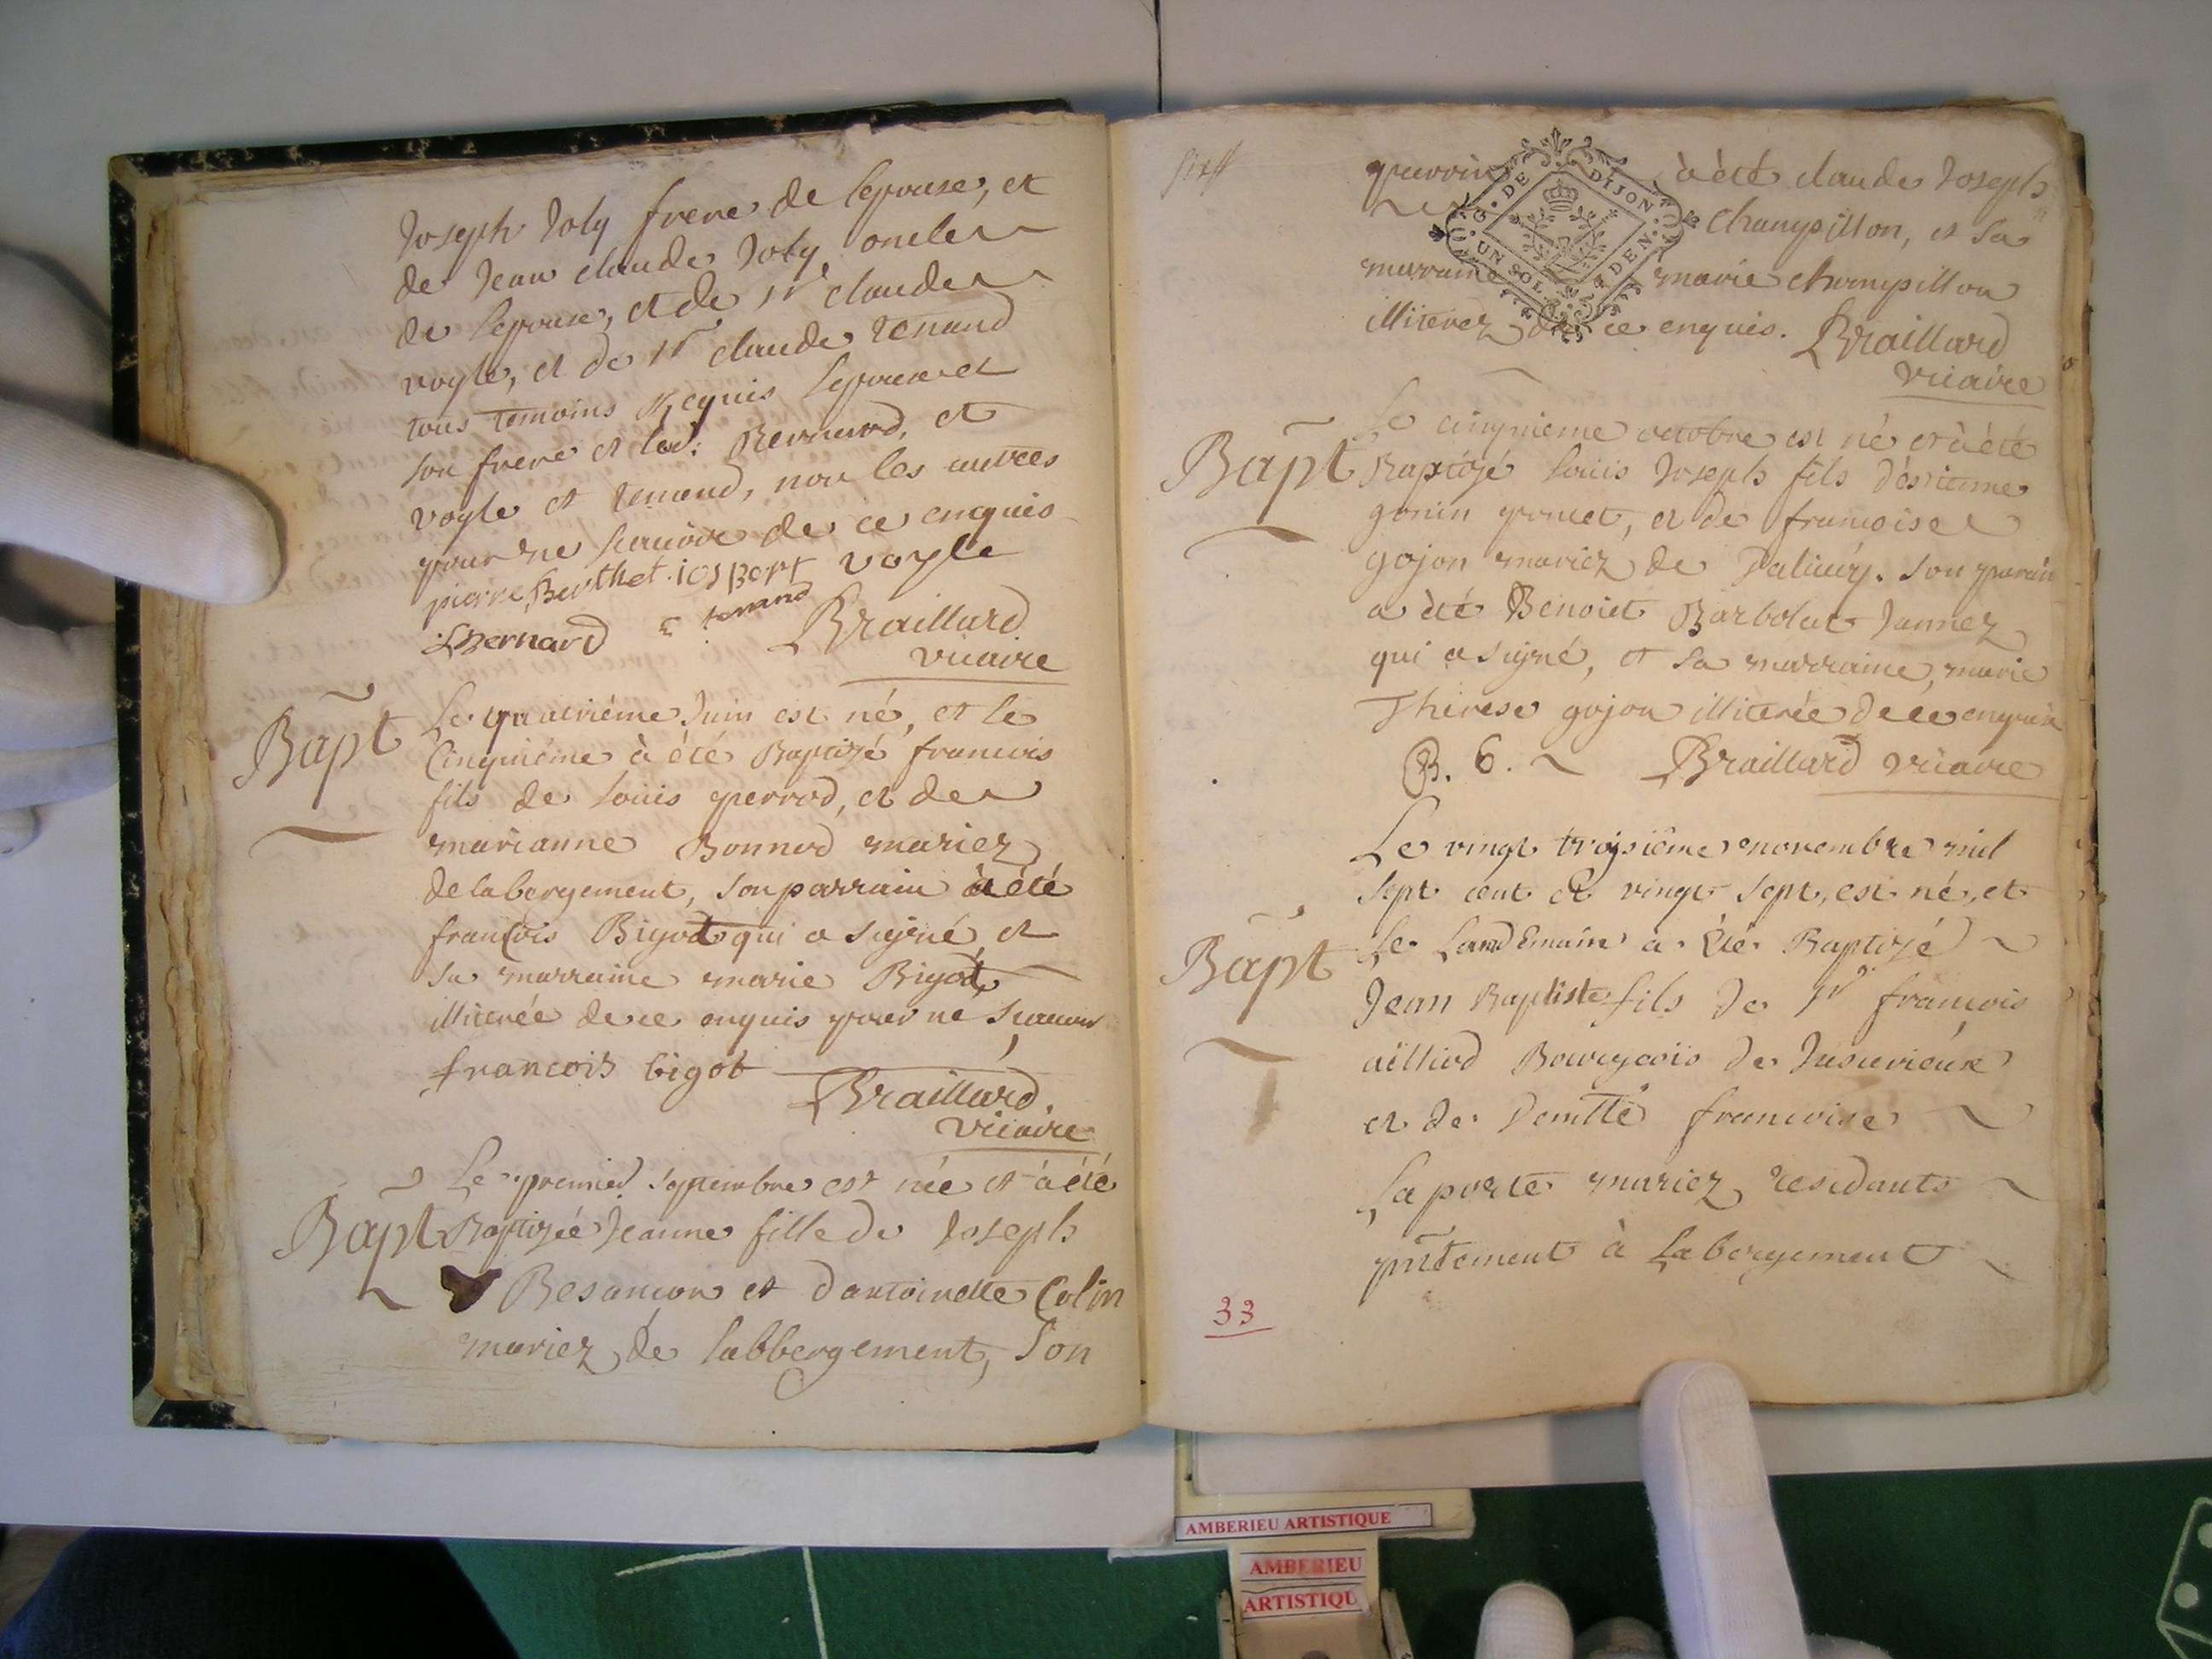 Joseph Joly frere de lepouse, et
de Jean claude Joly, oncle
de lepouse, et de sr claude
voyle, et de sr claude renand
tous temoins Requis lepoux et
son frere et led: Bernard, et
voyle et renand, non les autres
pour ne scauoir de ce enquis
pierre Berthet voyle
Bernard c renand Braillard
vicaire
Bapt
Le quatriéme Juin est né, et le
Cinquiéme à été Baptizé francois
fils de loüis perrod, et de
marianne Bonnod mariez
de labergement, son parrain à été
francois Bigot qui a signé, et
sa marraine marie Bigot,
illiterée de ce enquis pour ne scauoir
francois bigot
Braillard
vicaire
Bapt
Le premier septembre est née et à été
Baptizée Jeanne fille de Joseph
Besancon et dantoinette Colin
mariez de labbergement, son
parrain à été claude Joseph
Champillon, et sa
marraine marie champillon
illiterez de ce enquis. Braillard
vicaire
G. DE DIJON
UN SOL 4 DEN.
Bapt
Le cinquieme octobre est né et à été
Baptizé loüis Joseph fils déstienne
gonin poncet, et de francoise
gojon mariez de . son parain
a été Benoict Barbolat Jannez
qui a signé, et sa marraine, marie
Therese gojon illiterée de ce enquise
B. 6. Braillard vicaire
Le vingt troisiême novembre mil
sept cent et vingt sept, est né, et
Bapt
Le Landemain a Été Baptizé
Jean Baptiste fils de sr francois
ailliod Bourgeois de Jusurieux
et de Demlle francoise
Laporte mariez residants
pntement à Labergement
33
AMBERIEU ARTISTIQUE
AMBERIEU
ARTISTIQU